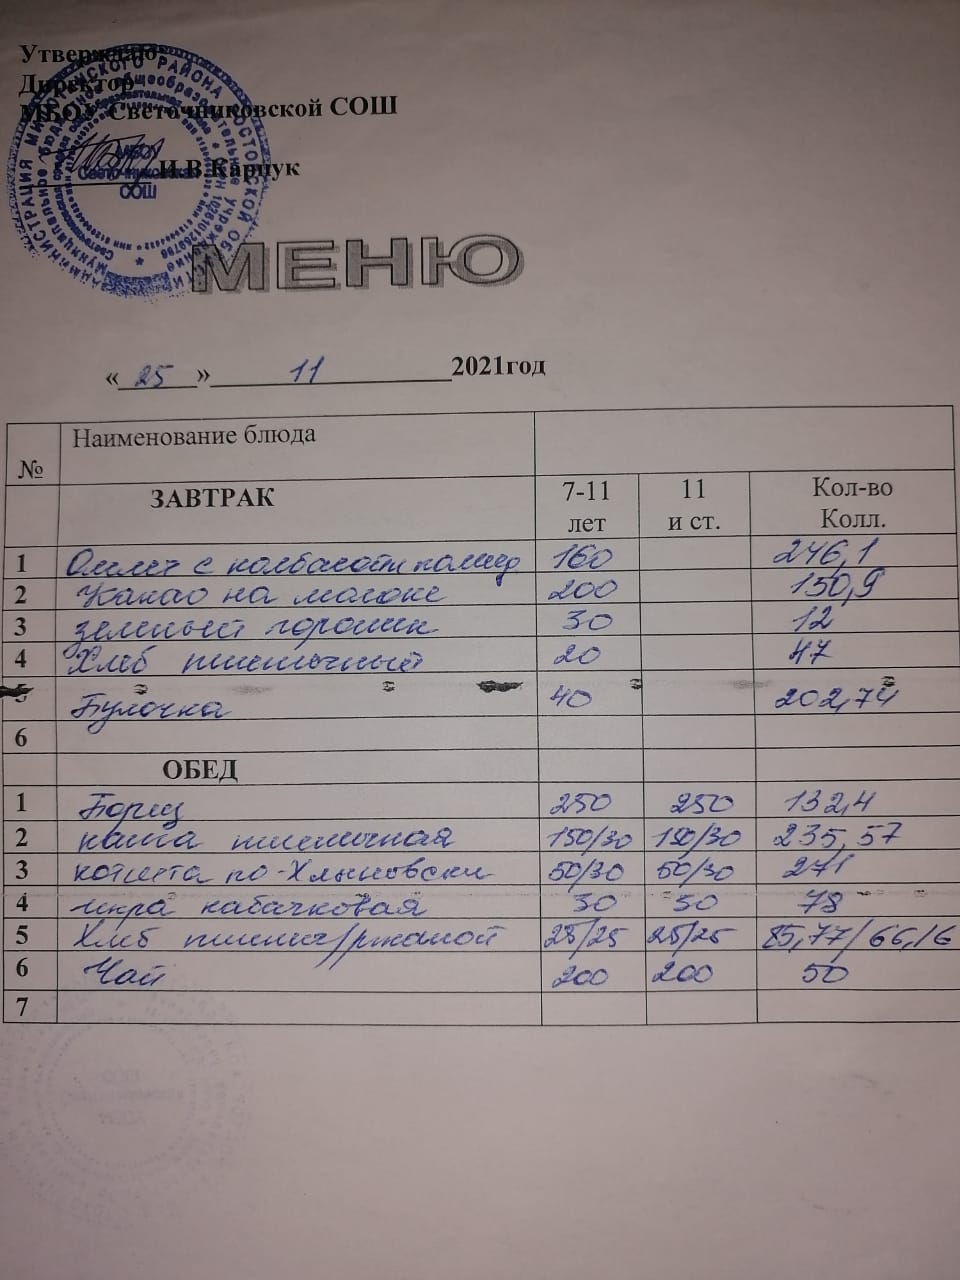 Утверждаю
Директор
МБОУ Светочниковской СОШ
И.В.Карпук
МЕНЮ
« 25 » 11 2021год
№ Наименование блюда
ЗАВТРАК 7-11 лет 11 и ст. Кол-во Колл.
1 Омлет с колбасой 160 246,1
2 Какао на молоке 200 150,9
3 зеленый горошек 30 12
4 Хлеб пшеничный 20 47
5 Булочка 40 202,74
6
ОБЕД
1 Борщ 250 250 132,4
2 каша пшеничная 150/30 150/30 235,57
3 котлета по-Хлыновски 50/30 50/30 271
4 икра кабачковая 30 50 78
5 Хлеб пшенич/ржаной 25/25 25/25 85,77/66,16
6 Чай 200 200 50
7